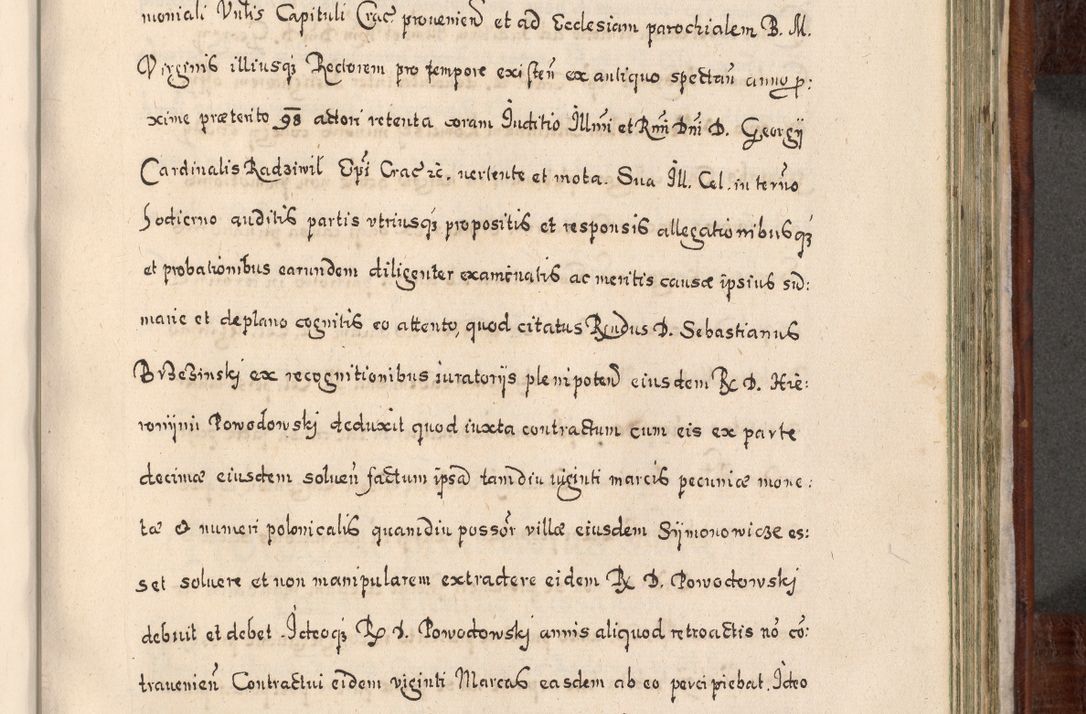 moniali Vnlis Capituli Crac̃ prouenien̄ et ad Ecclesiam parochialem B. M.
Virginis illiusq̃ Rectorem pro tempore existen̄ ex antiquo spectan̄ anno p:
xime præterito 98 actori retenta coram Iuditio Illm̃i et Rm̃i Dn̄i D. Georgij
Cardinalis Radziwił Ep̃i Crac̃ zc̃. uertente et mota. Sua Ill. Cel. in tern̄o
hodierno auditis partis vtriusq̃ propositis et responsis allegationibusq̃
et probationibus earundem diligenter examinatis ac meritis causæ ipsius sũ:
marie et deplano cognitis eo attento, quod citatus Rn̄dus D. Sebastianus
Brzezinskj ex recognitionibus iuratorijs plenipoten̄ eiusdem R. D. Hie:
ronijmi Powodowskj deduxit quod iuxta contractum cum eis ex parte
decimæ eiusdem soluen̄ factum ipsa tamdiu uiginti marcis pecuniæ mone:
tæ & numeri polonicalis quamdiu possõr villæ eiusdem Sijmonowicze es:
set soluere et non manipularem extradere eidem R. D. Powodowskj
debuit et debet. Ideoq̃ R. D. Powodowskj annis aliquod retroactis nõ cõ:
trauenien̄ Contractui eidem viginti Marcas easdem ab eo percipiebat. Ideo